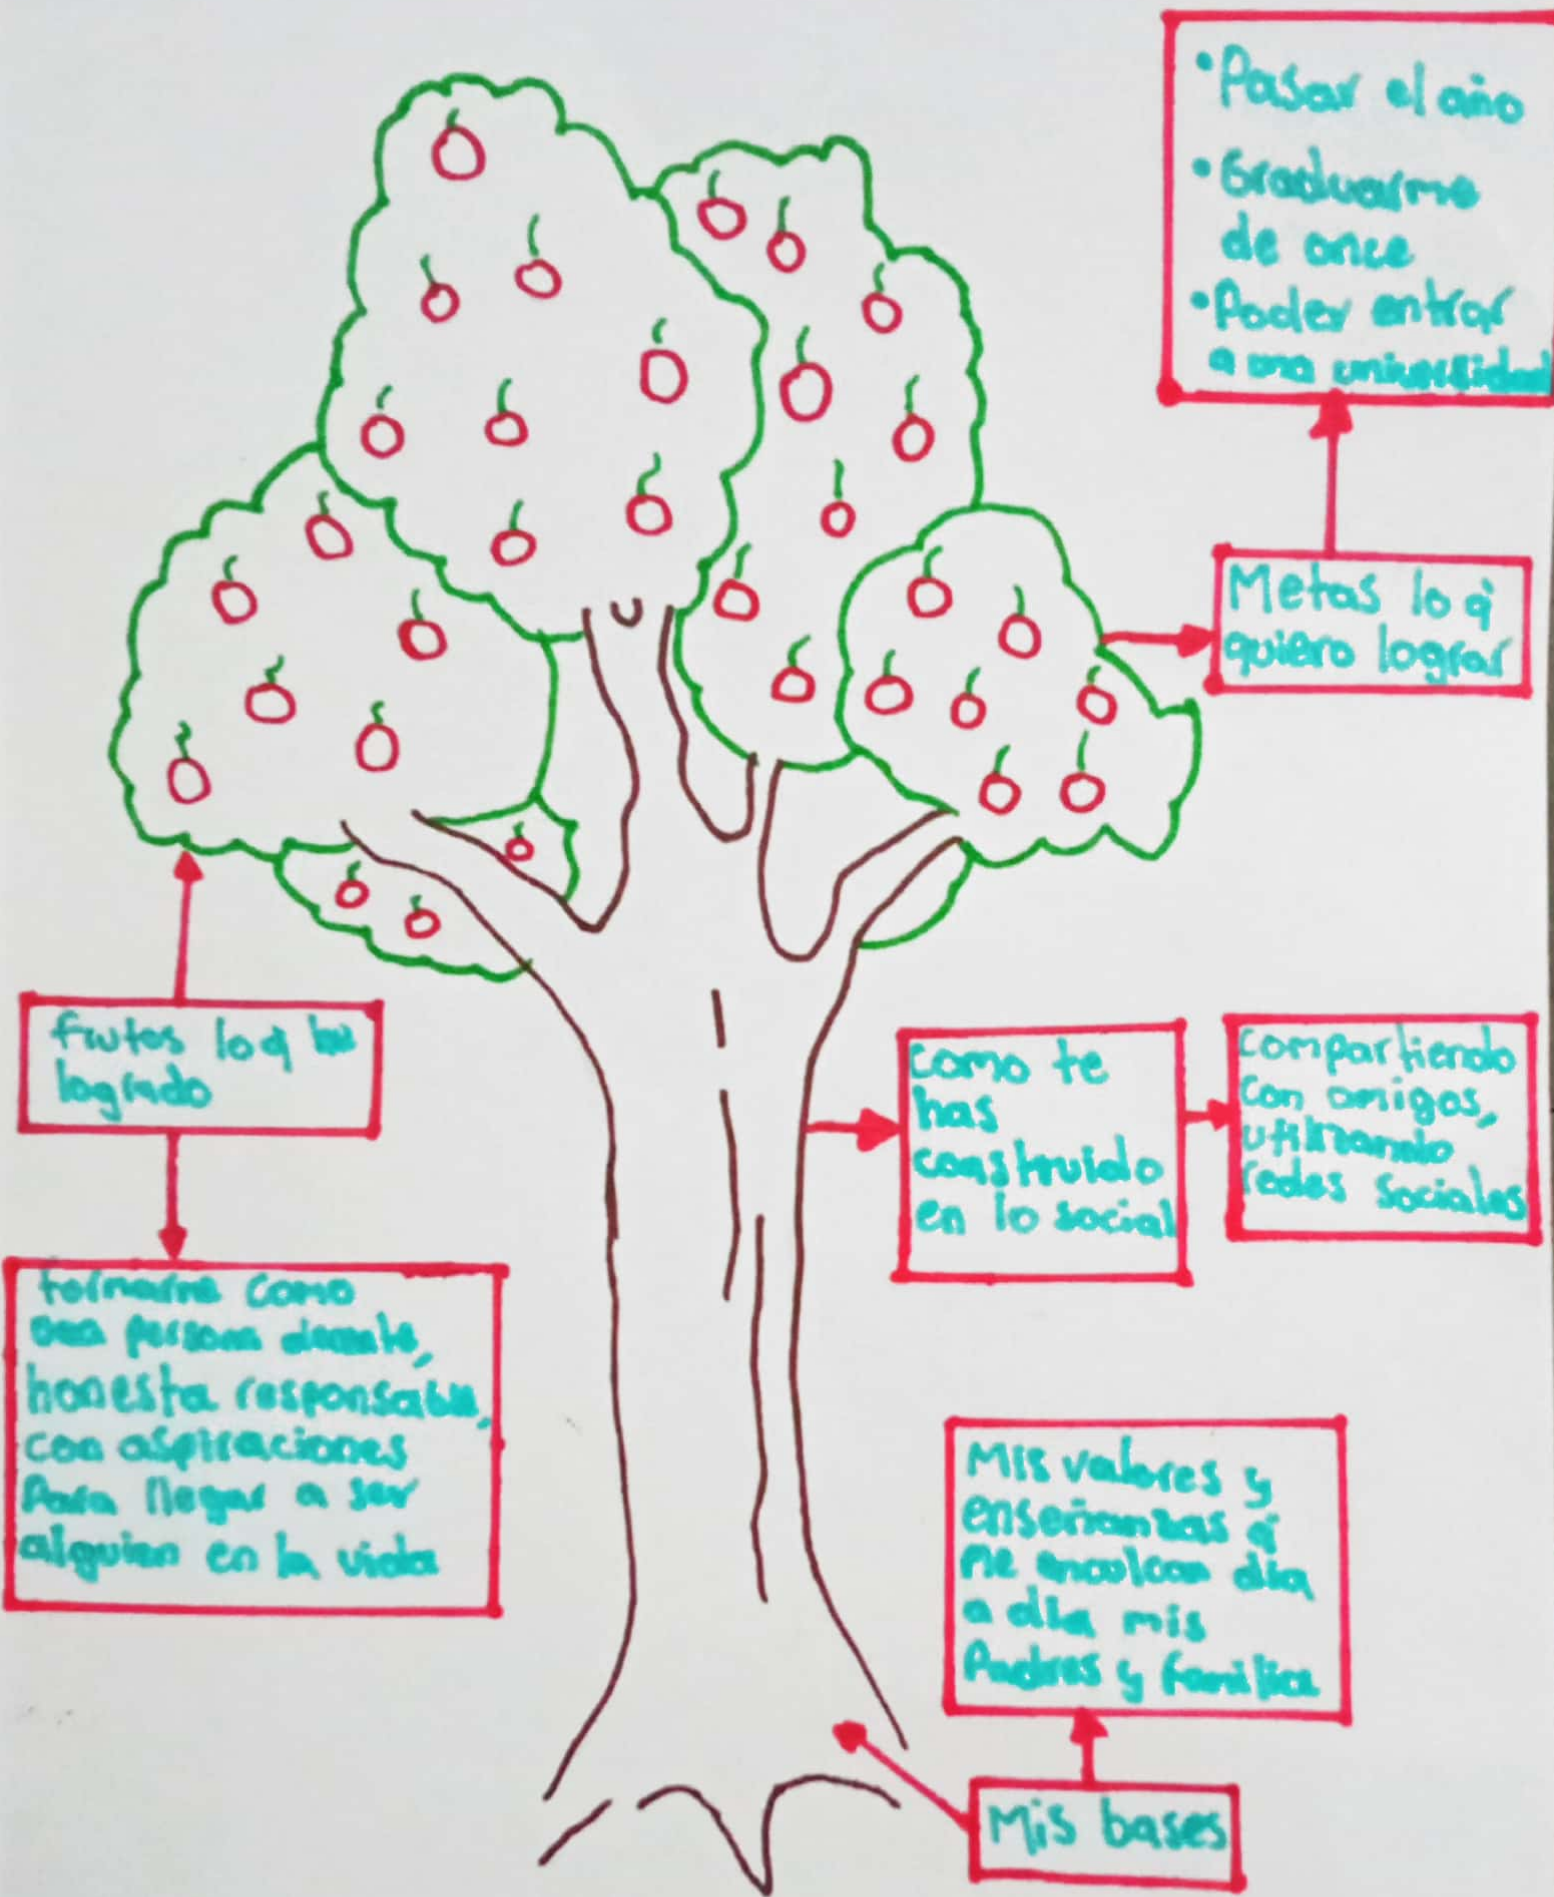 • Pasar el año
• Graduarme
de once
• Poder entrar
a una universidad
Metas lo q'
quiero lograr
frutos lo q he
logrado
formarme como
una persona decente,
honesta responsable,
con aspiraciones
Para llegar a ser
alguien en la vida
como te
has
construido
en lo social
compartiendo
con amigos,
utilizando
redes sociales
Mis valores y
enseñanzas q'
me inculcan día
a día mis
Padres y familia
Mis bases